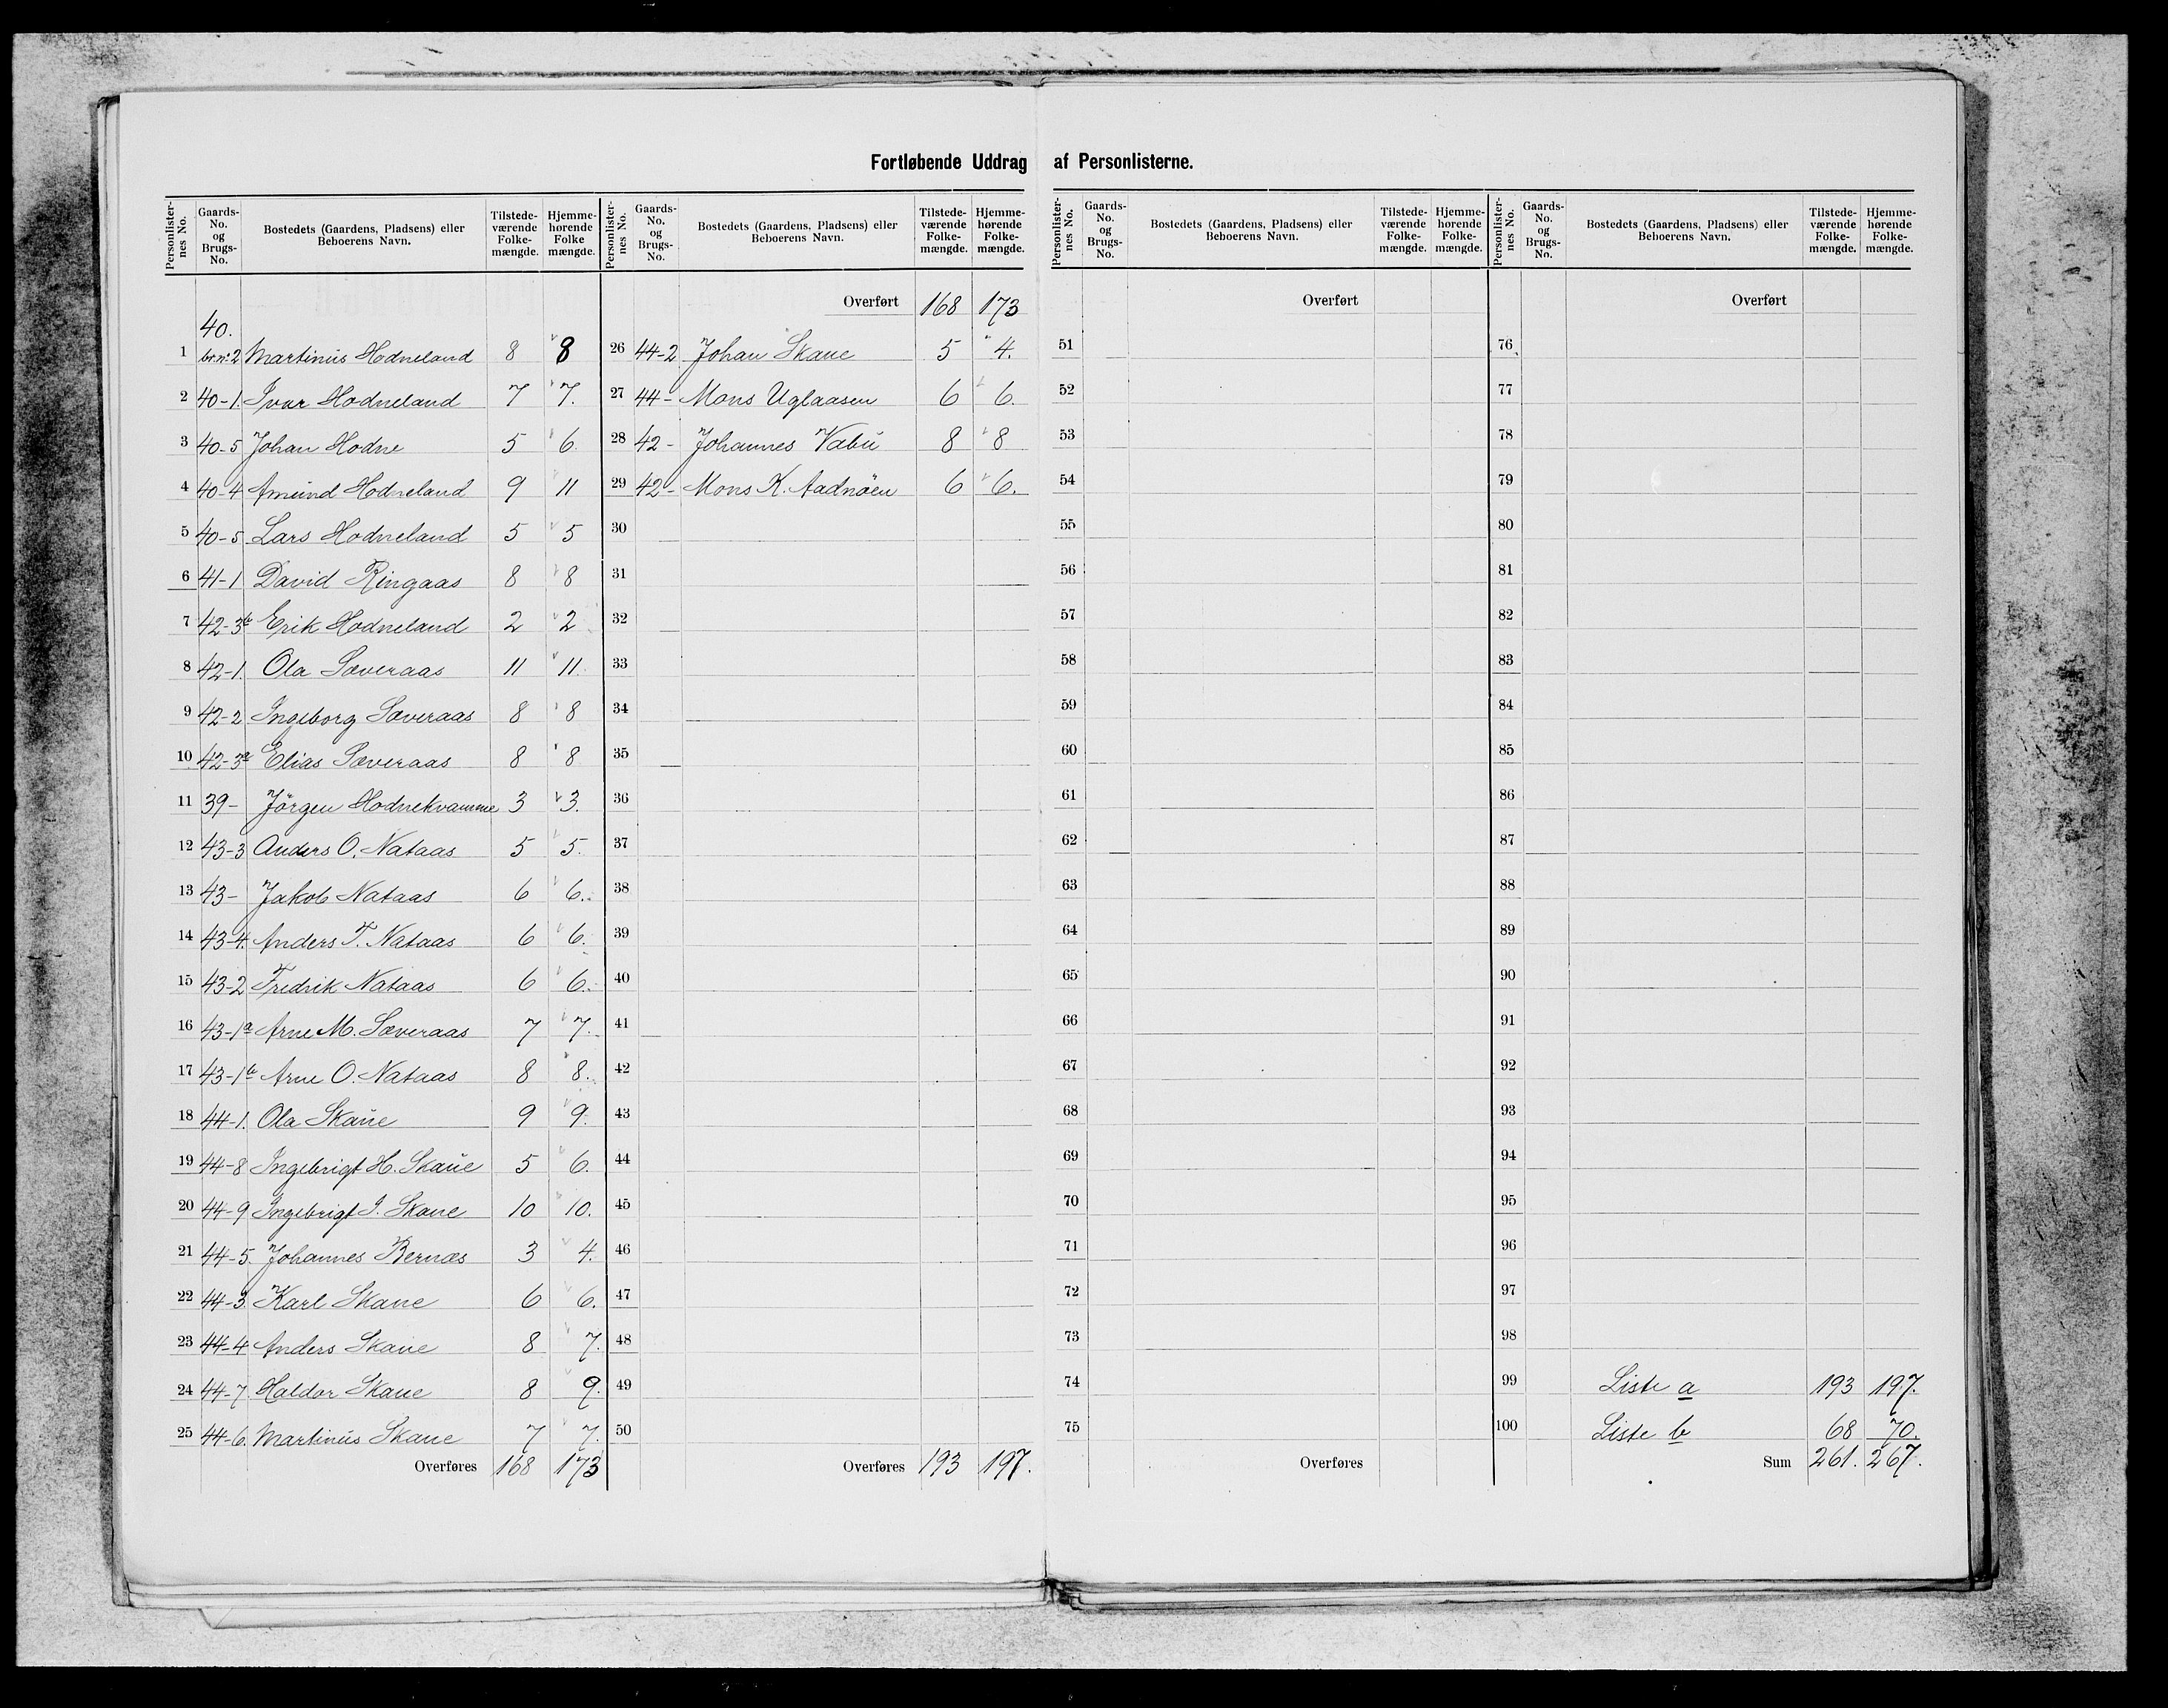 Fortløbende Uddrag af Personlisterne.
Personlister-nes No. Gaards-No. og Brugs-No. Bostedets (Gaardens, Pladsens) eller Beboerens Navn. Tilstede-værende Folke-mængde. Hjemme-hørende Folke mængde.
40.
1 br.no. 2 Martinus Hodneland 8 8
2 40-1. Ivar Hodneland 7 7.
3 40-5 Johan Hodne 5 6.
4 40-4 Amund Hodneland 9 11
5 40-5 Lars Hodneland 5 5
6 41-1 David Ringaas 8 8
7 42-3b Erik Hodneland 2 2
8 42-1. Ola Sæveraas 11 11.
9 42-2 Ingeborg Sæveraas 8 8
10 42-3a Elias Sæveraas 8 8
11 39- Jörgen Hodnekvamme 3 3.
12 43-3 Anders O. Nataas 5 5.
13 43- Jakob Nataas 6 6.
14 43-4. Anders T. Nataas 6 6.
15 43-2 Fredrik Nataas 6 6.
16 43-1a Arne M. Sæveraas 7 7.
17 43-1b Arne O. Nataas 8 8.
18 44-1. Ola Skaue 9 9.
19 44-8 Ingebrigt H. Skaue 5 6.
20 44-9 Ingebrigt J. Skaue 10 10.
21 44-5. Johannes Bernæs 3 4.
22 44-3. Karl Skaue 6 6.
23 44-4 Anders Skaue 8 7.
24 44-7 Haldor Skaue 8 9.
25 44-6. Martinus Skaue 7 7.
Overføres 168 173
Personlister-nes No. Gaards-No. og Brugs-No. Bostedets (Gaardens, Pladsens) eller Beboerens Navn. Tilstede-værende Folke-mængde. Hjemme-hørende Folke-mængde.
Overført 168 173
26 44-2 Johan Skaue 5 4.
27 44- Mons Uglaasen 6 6.
28 42- Johannes Vabu 8 8
29 42- Mons K. Aadnöen 6 6.
30
31
32
33
34
35
36
37
38
39
40
41
42
43
44
45
46
47
48
49
50
Overføres 193 197.
Personlister-nes No. Gaards-No. og Brugs-No. Bostedets (Gaardens, Pladsens) eller Beboerens Navn. Tilstede-værende Folke-mængde. Hjemme-hørende Folke-mængde.
Overført
51
52
53
54
55
56
57
58
59
60
61
62
63
64
65
66
67
68
69
70
71
72
73
74
75
Overføres
Personlister-nes No. Gaards-No. og Brugs-No. Bostedets (Gaardens, Pladsens) eller Beboerens Navn. Tilstede-værende Folke-mængde. Hjemme-hørende Folke-mængde.
Overført
76
77
78
79
80
81
82
83
84
85
86
87
88
89
90
91
92
93
94
95
96
97
98
99 Liste a 193 197.
100 Liste b 68 70.
Sum 261. 267.